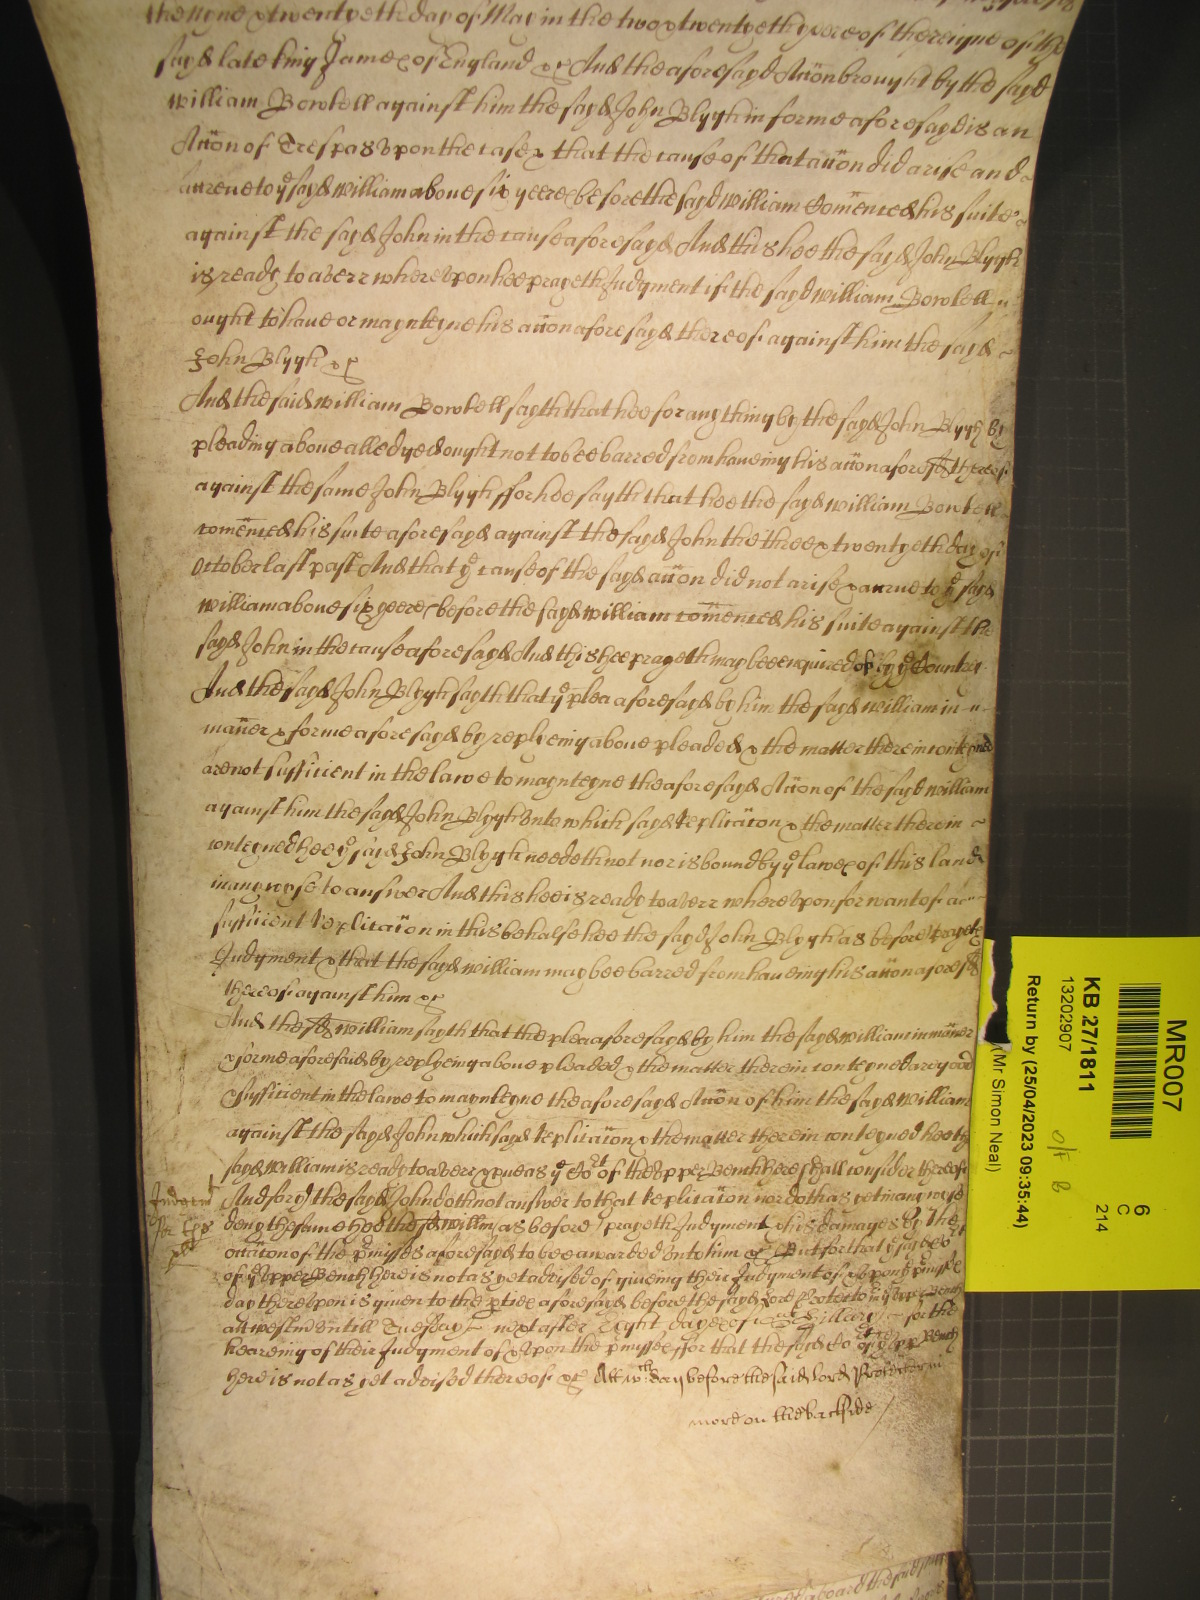 the Nyne & twentyeth day of May in the two & twentyeth yeere of the reigne of the
sayd late king James of England &c And the aforesayd Accon brought by the sayd
William Bowtell against him the sayd John Blygh in forme aforesayd is an
Accon of Trespas upon the case & that the cause of that accon did arise and
accrue to ye sayd William above six yeeres before the sayd William Comenced his suite
against the sayd John in the cause aforesayd And this hee the sayd John Blygh
is ready to averr whereupon hee prayeth Judgment if the sayd William Bowtell
ought to have or maynteyne his accon aforesayd thereof against him the sayd
John Blygh &c
And the said William Bowtell sayth that hee for any thing by the sayd John Blygh by
pleading above alledged ought not to bee barred from haveing his accon aforesd thereof
against the same John Blygh ffor hee sayth that hee the sayd William Bowtell
comenced his suite aforesayd against the sayd John the three & twentyeth day of
October last past And that ye cause of the sayd accon did not arise & accrue to ye sayd
William above six yeeres before the sayd William comenced his suite against the
sayd John in the cause aforesayd And this hee prayeth may bee enquired of by ye Countrey
And the sayd John Blygh sayth that ye plea aforesayd by him the sayd William in
maner & forme aforesayd by replyeing above pleaded & the matter therein conteyned
are not sufficient in the lawe to maynteyne the aforesayd Accon of the sayd William
against him the sayd John Blygh Unto which sayd Replicacon & the matter therein
conteyned hee ye sayd John Blygh needeth not nor is bound by ye lawes of this land
in any wyse to answer And this hee is ready to averr whereupon for want of a
sufficient Replicacon in this behalfe hee the sayd John Blygh as before prayeth
Judgment & that the sayd William may bee barred from haveing his accon aforesd
thereof against him &c
And the sd William sayth that the plea aforesayd by him the sayd William in maner
& forme aforesaid by replyeing above pleaded & the matter therein conteyned are good
& sufficient in the lawe to maynteyne the aforesayd Accon of him the sayd William
against the sayd John which sayd Replicacon & the matter therein conteyned hee the
sayd William is ready to averr & prove as ye Cort of the Upper Bench here shall consider thereof
Judgemt
for the
plt
And for yt the sayd John doth not answer to that Replicacon nor doth as yet in any wise
deny the same hee the sd William as before prayeth Judgment & his damages By the
occacon of the pmisses aforesayd to bee awarded unto him &c But for that ye sayd Cort
of ye Upper Bench here is not as yet advised of giveing their Judgment of & upon ye pmisses
day thereupon is given to the pties aforesayd before the sayd Lord Protector in ye Upper Bench
att Westmr Untill Tuesday next after Eight dayes of St Hillary for the
heareing of their Judgment of & upon the pmisses ffor that the sayd Cort of ye Upper Bench
here is not as yet advised thereof &c Att wch day before the said Lord Protector
more on the backside
MR007
KB 27/1811
13202907
Return by (25/04/2023 09:35:44)
(Mr Simon Neal)
6
C
214